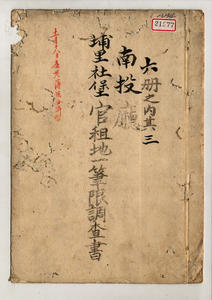 21577
六册之內其三
南投廳
埔里社堡官租地一筆限調查書